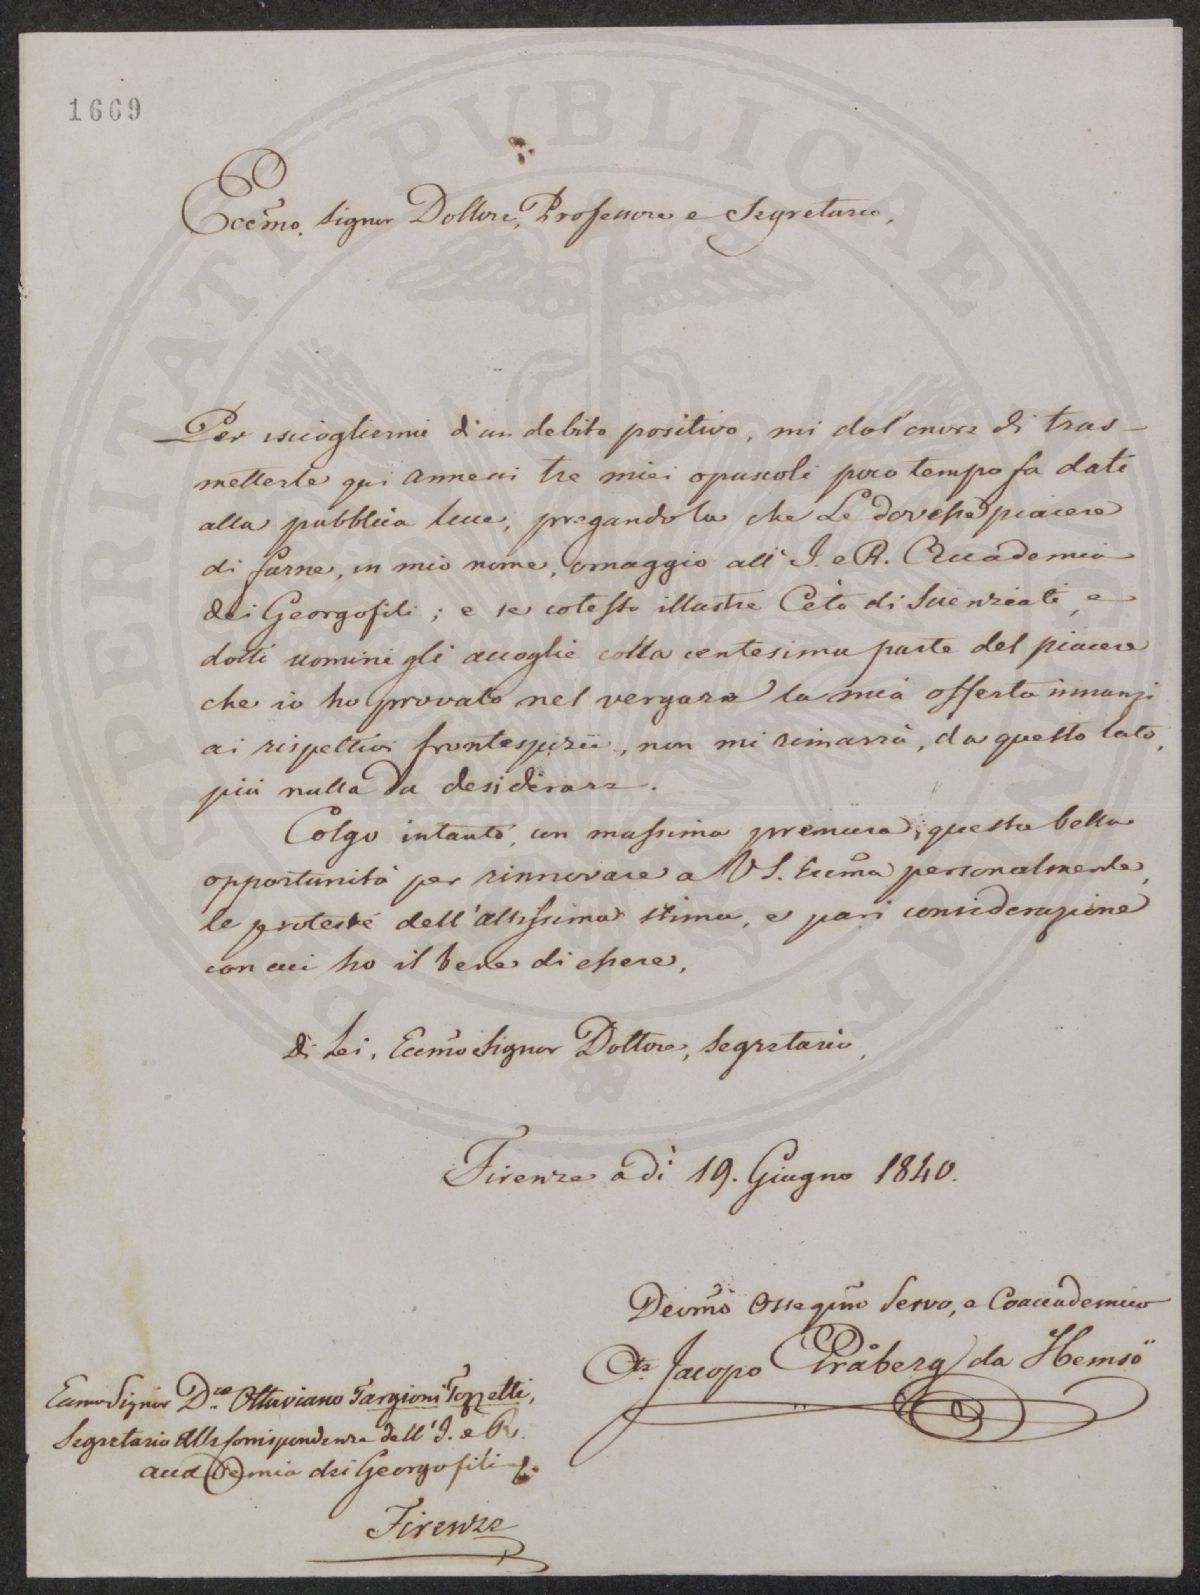 1669
Eccmo. Signor Dottore, Professore e Segretario,
Per isciogliermi d'un debito positivo, mi do l'onore di tras-
metterle qui annessi tre miei opuscoli poco tempo fa dati
alla pubblica luce, pregandola che Le piacere
di farne, in mio nome, omaggio all' I. e R. Accademia
dei Georgofili; e se cotesto illustre Ceto di Scienziati, e
dotti uomini gli accoglie colla centesima parte del piacere
che io ho provato nel vergare la mia offerta innanzi
ai rispettivi frontespizii, non mi rimarrà, da questo lato,
più nulla da desiderare.
Colgo intanto, con massima premura, questa bella
opportunità per rinnovare a VS. Eccma personalmente,
le proteste dell'altissima stima, e pari considerazione
con cui ho il bene di essere,
Di Lei, Eccmo Signor Dottore, Segretario,
Firenze a dì 19. Giugno 1840.
Devmo Ossequmo Servo, e Coaccademico
Cte Jacopo Gråberg da Hemsö
Eccmo Signor D.re Ottaviano Targioni Tozzetti,
Segretario delle Corrispondenze dell' I. e R.
Accademia dei Georgofili
Firenze
PROSPERITATI PUBLICAE AUGENDAE